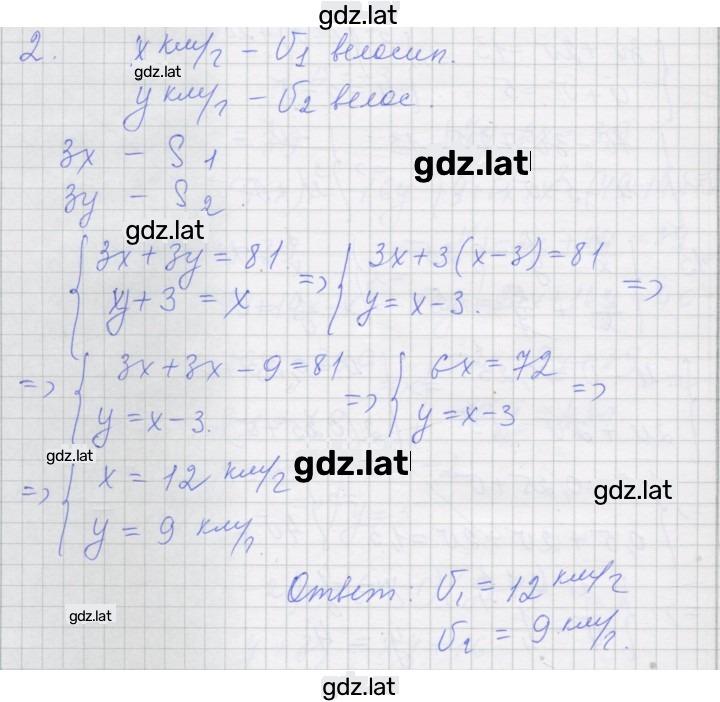 gdz.lat
2. x км/г – v1 велосип.
gdz.lat
y км/г – v2 велос.
3x – S1
gdz.lat
3y – S2.
gdz.lat
{ 3x + 3y = 81 => { 3x + 3(x – 3) = 81 =>
y + 3 = x y = x – 3.
=> { 3x + 3x – 9 = 81 => { 6x = 72 =>
y = x – 3. y = x – 3
gdz.lat
=> { x = 12 км/г gdz.lat
gdz.lat
y = 9 км/г.
Ответ: v1 = 12 км/г
gdz.lat
v2 = 9 км/г.
gdz.lat